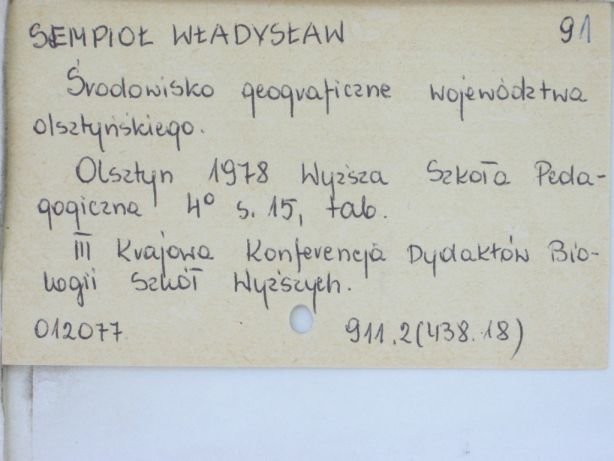 SEMPIOŁ WŁADYSŁAW 91
Środowisko geograficzne województwa
olsztyńskiego.
Olsztyn 1978 Wyższa Szkoła Peda-
gogiczna 4° s. 15, tab.
III Krajowa Konferencja Dydaktów Bio-
logii Szkół Wyższych.
012077 911.2(438.18)